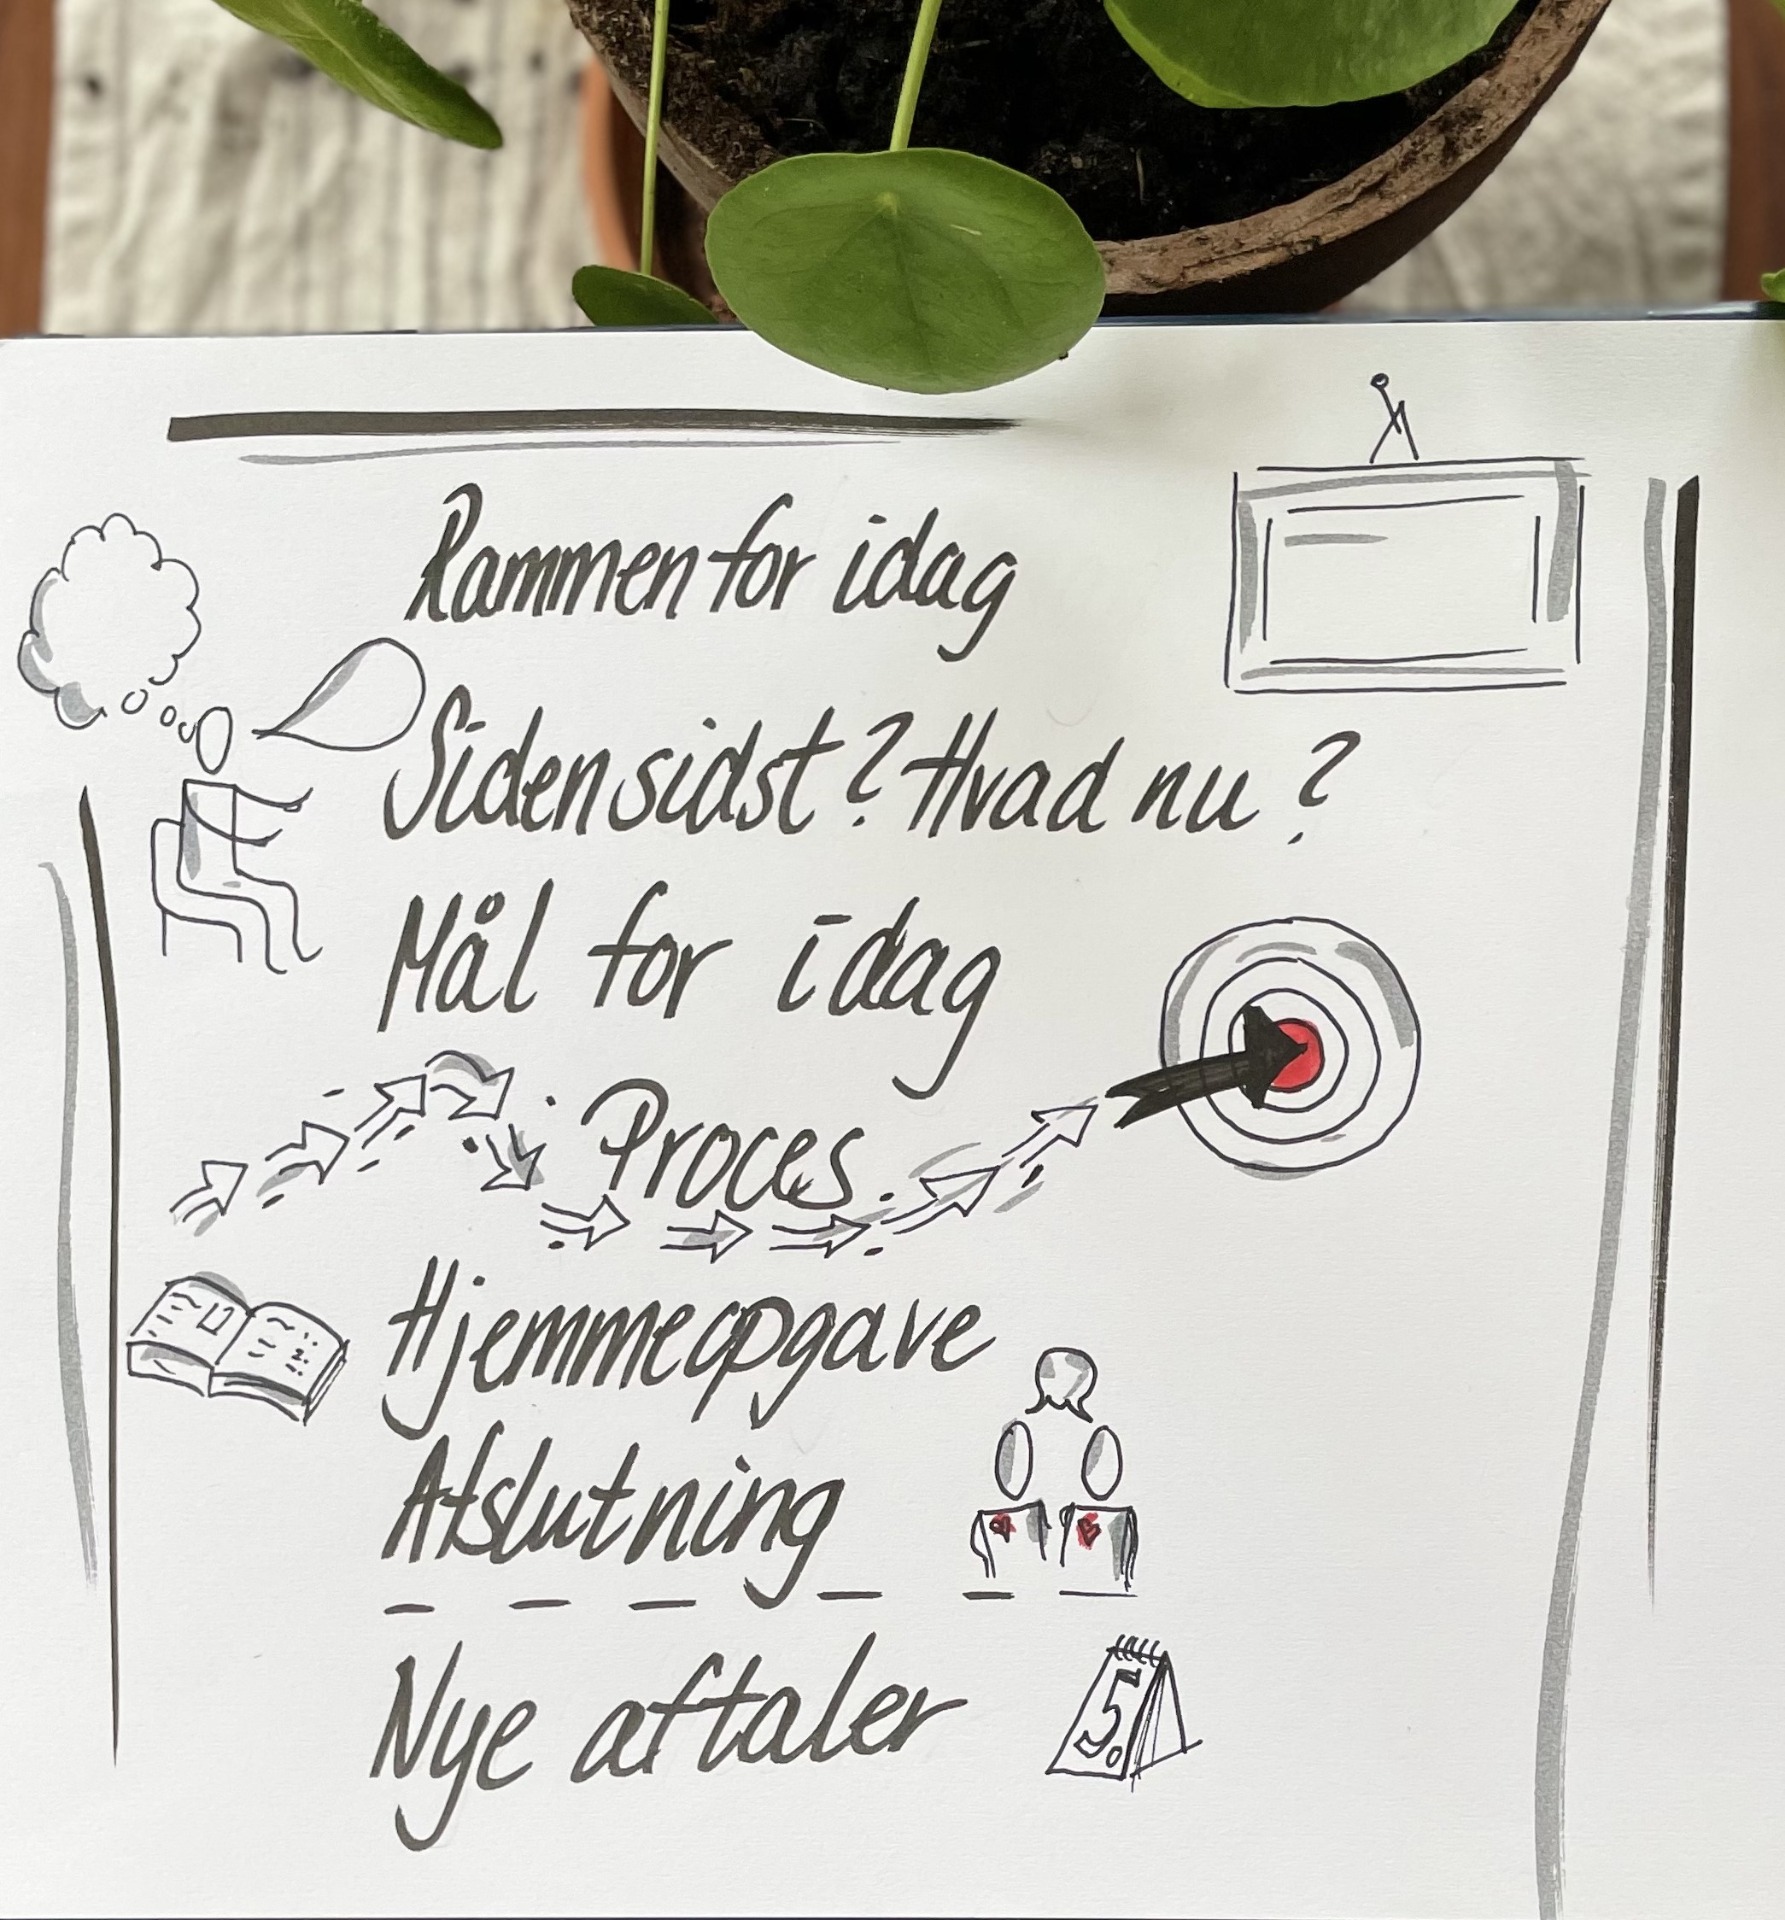 Rammen for idag
Siden sidst? Hvad nu?
Mål for idag
Proces
Hjemmeopgave
Afslutning
Nye aftaler
5.